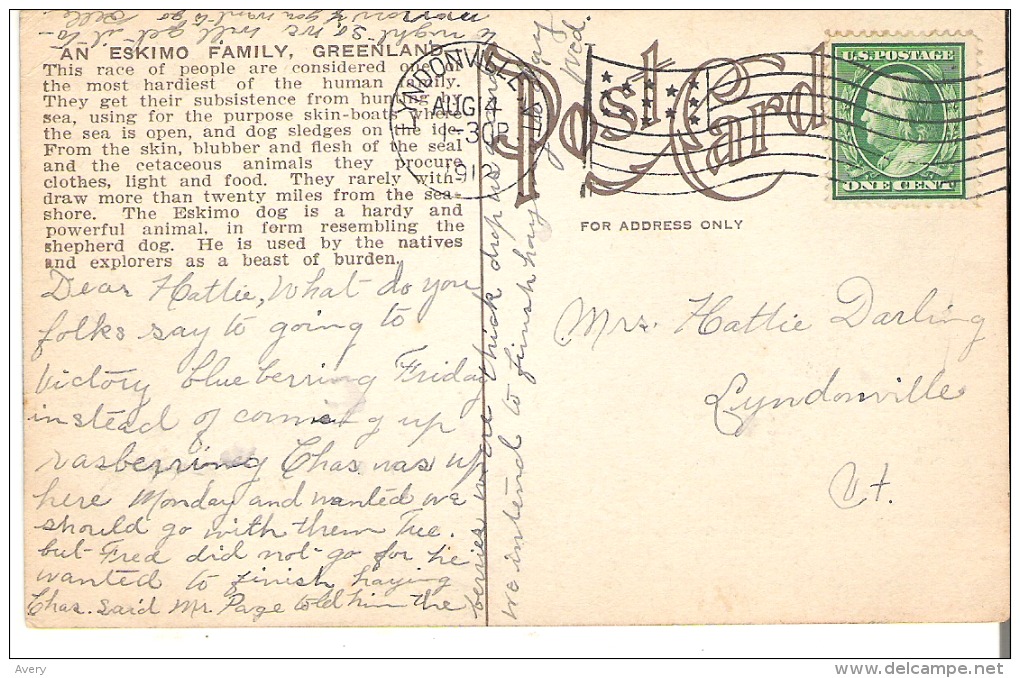 AN ESKIMO FAMILY, GREENLAND.
This race of people are considered one of
the most hardiest of the human family.
They get their subsistence from hunting
sea, using for the purpose skin-boats where
the sea is open, and dog sledges on the ice.
From the skin, blubber and flesh of the seal
and the cetaceous animals they procure
clothes, light and food. They rarely with-
draw more than twenty miles from the sea-
shore. The Eskimo dog is a hardy and
powerful animal, in form resembling the
shepherd dog. He is used by the natives
and explorers as a beast of burden.
Post Card
LYNDONVILLE
AUG 14
1-30P
1912
VT.
U.S. POSTAGE
ONE CENT
FOR ADDRESS ONLY
Mrs. Hattie Darling
Lyndonville
Vt.
Dear Hattie, What do you
folks say to going to
Victory blueberring Friday
instead of coming up
rasberring Chas. was up
here Monday and wanted we
should go with them Tue.
but Fred did not go for he
wanted to finish haying
Chas. said Mr. Page told him the
berries were thick drop me a
we intend to finish haying
Wed.
to night so we will get it to-
morrow if you want to go
Avery
www.delcampe.net